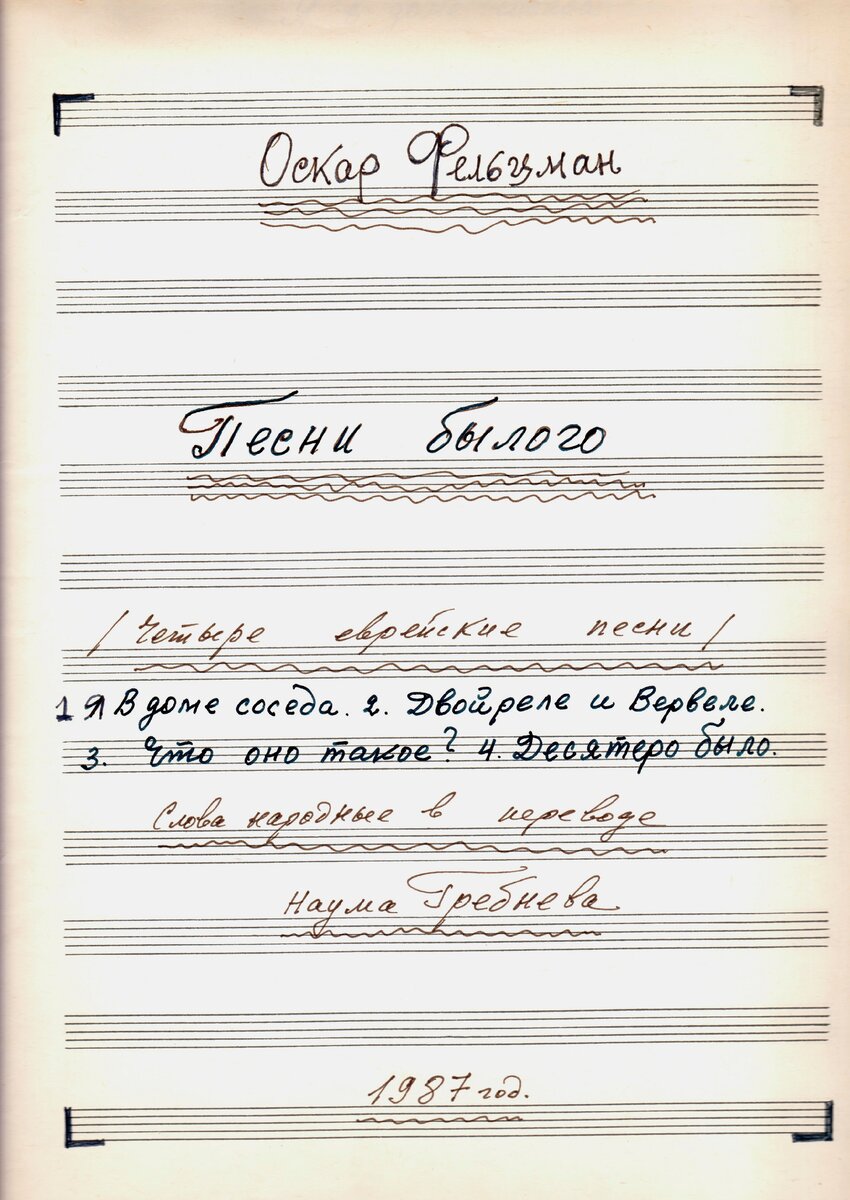 Оскар Фельцман
Песни былого
/ Четыре еврейские песни /
1 Я В доме соседа. 2. Двойреле и Вервеле.
3. Что оно такое? 4. Десятеро было.
Слова народные в переводе
Наума Гребнева
1987 год.